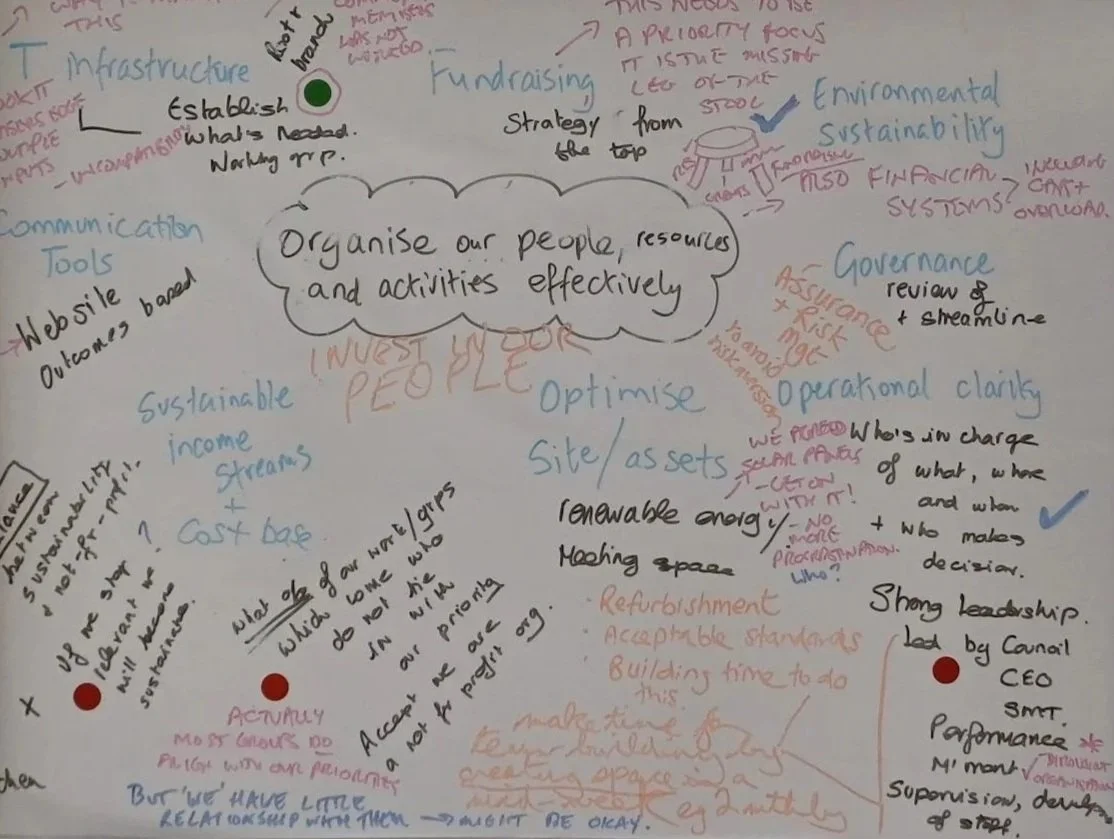 THIS
THIS NEEDS TO BE
A PRIORITY FOCUS
IT IS THE MISSING
LEG OF THE
STOOL
MEMBERS
WAS NOT
Infrastructure
Establish
what's needed.
Working grp.
Fundraising
Strategy from
the top
Environmental
Sustainability
FUNDRAISING
GRANTS
ALSO FINANCIAL
SYSTEMS
INCLUDING
OVERLOAD.
Communication
Tools
Website
Outcomes based
Organise our people, resources
and activities effectively
INVEST IN OUR
PEOPLE
Governance
review of
+ streamline
Assurance
+ Risk
Mgt
to avoid
risk aversion
Sustainable
income
Streams
+
Cost base
between
sustainability
+ not-fr-profit.
If we stay
relevant we ?
will become
sustainable.
X
then
What of our work/grps
which come who
do not tie
in with
our priority
Accept we are
a not fr profit org.
ACTUALLY
MOST GROUPS DO
ALIGN WITH OUR PRIORITIES
BUT 'WE' HAVE LITTLE
RELATIONSHIP WITH THEM → MIGHT BE OKAY.
Optimise
Site/assets
renewable energy
Meeting space
WE AGREED
SOLAR PANELS
- GET ON
WITH IT!
- NO
MORE
PROCRASTINATION.
WHO?
· Refurbishment
· Acceptable standards
· Building time to do
this.
make time for
team building by
creating space in a
mid-week eg 2 mthly
Operational clarity
Who's in charge
of what, where
and when
+ who makes
decision.
Strong Leadership.
Led by Council
CEO
SMT.
Performance *
M'ment
THROUGHOUT
ORGANISATION
Supervision,
of staff